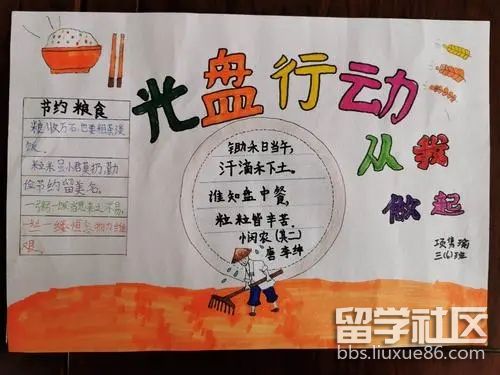 光盘行动
从我
做起
节约粮食
粮收万石，也要粗茶淡
饭。
粒米虽小君莫扔，勤
俭节约留美名。
一粥一饭当思来之不易，
一丝一缕恒念物力维
艰。
锄禾日当午，
汗滴禾下土。
谁知盘中餐，
粒粒皆辛苦。
悯农（其二）
唐 李绅
三（6）班
留学社区
bbs.liuxue86.com